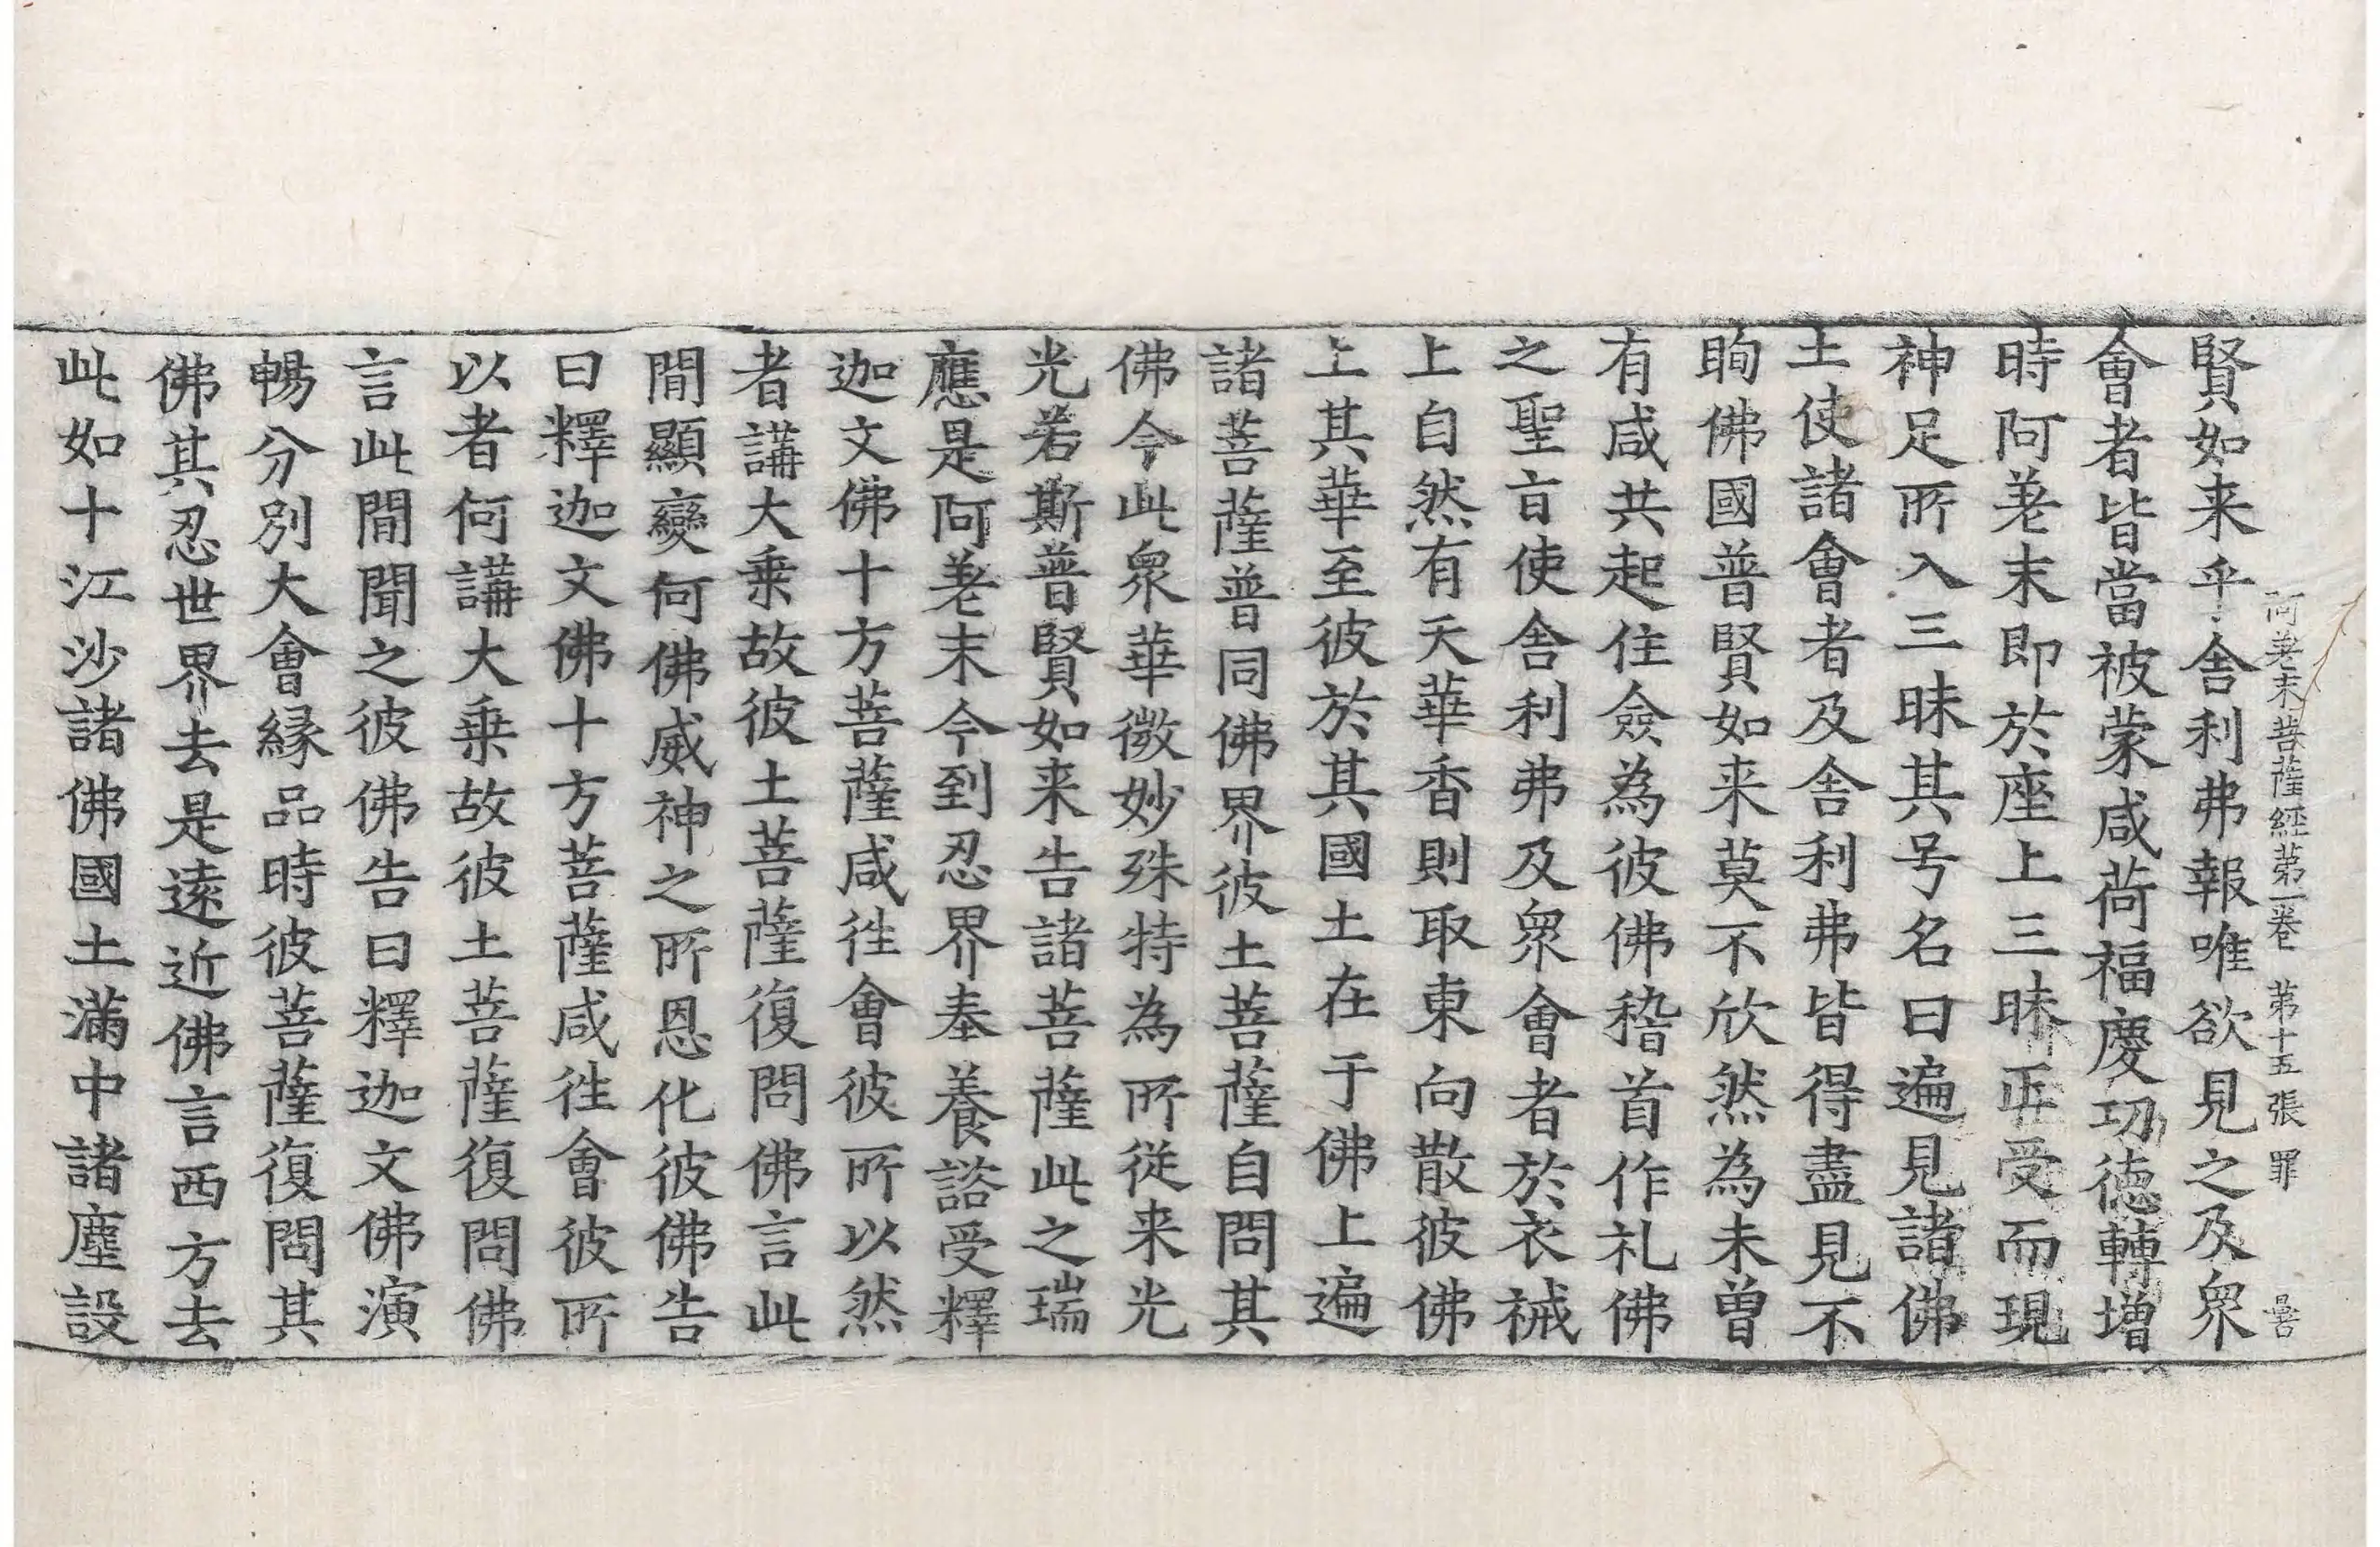 阿差末菩薩經第一卷 第十五張 罪
賢如来乎舎利弗報唯欲見之及衆
會者皆當被蒙咸荷福慶功徳轉増
時阿差末即於座上三昧正受而現
神足所入三昧其号名曰遍見諸佛
土使諸會者及舎利弗皆得盡見不
眴佛國普賢如来莫不欣然為未曽
有咸共起住僉為彼佛稽首作礼佛
之聖旨使舎利弗及衆會者於衣裓
上自然有天華香則取東向散彼佛
上其華至彼於其國土在于佛上遍
諸菩薩普同佛界彼土菩薩自問其
佛今此衆華微妙殊特為所從来光
光若斯普賢如来告諸菩薩此之瑞
應是阿差末今到忍界奉養諮受釋
迦文佛十方菩薩咸徃會彼所以然
者講大乗故彼土菩薩復問佛言此
間顯變何佛威神之所恩化彼佛告
曰釋迦文佛十方菩薩咸徃會彼所
以者何講大乗故彼土菩薩復問佛
言此間聞之彼佛告曰釋迦文佛演
暢分別大會縁品時彼菩薩復問其
佛其忍世界去是遠近佛言西方去
此如十江沙諸佛國土滿中諸塵設